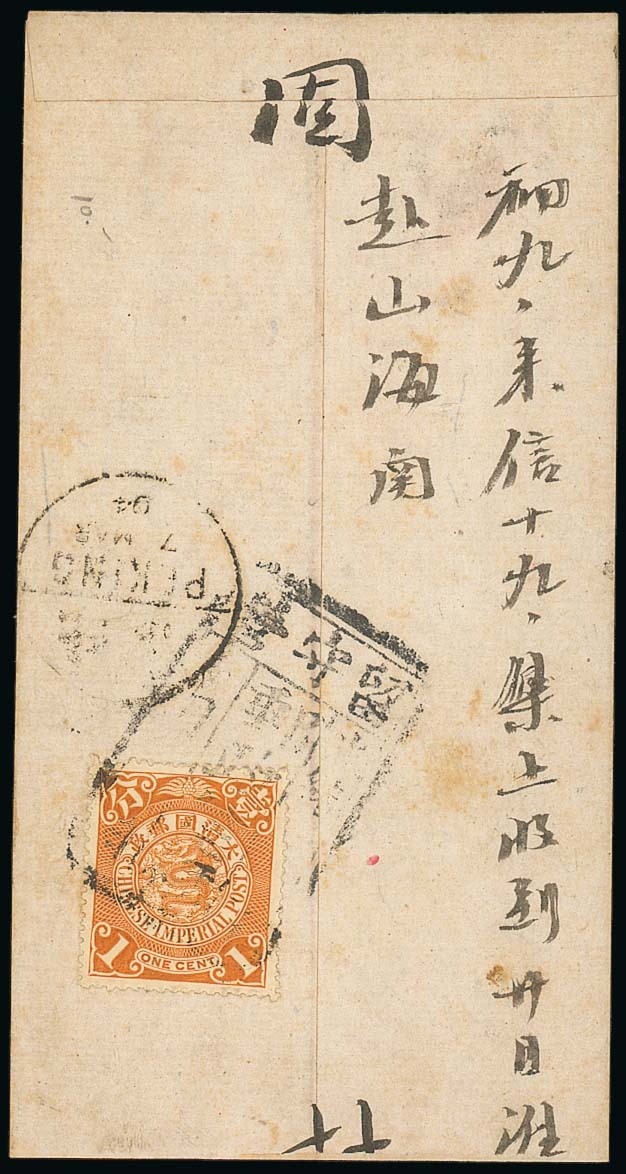 初九、来信十九、集上收到廿日准
赴山海南
固
廿
10.
PEKING
7 MAR
04
郵政
壹分
大清國郵政
CHINESE·IMPERIAL POST
1 ONE CENT. 1